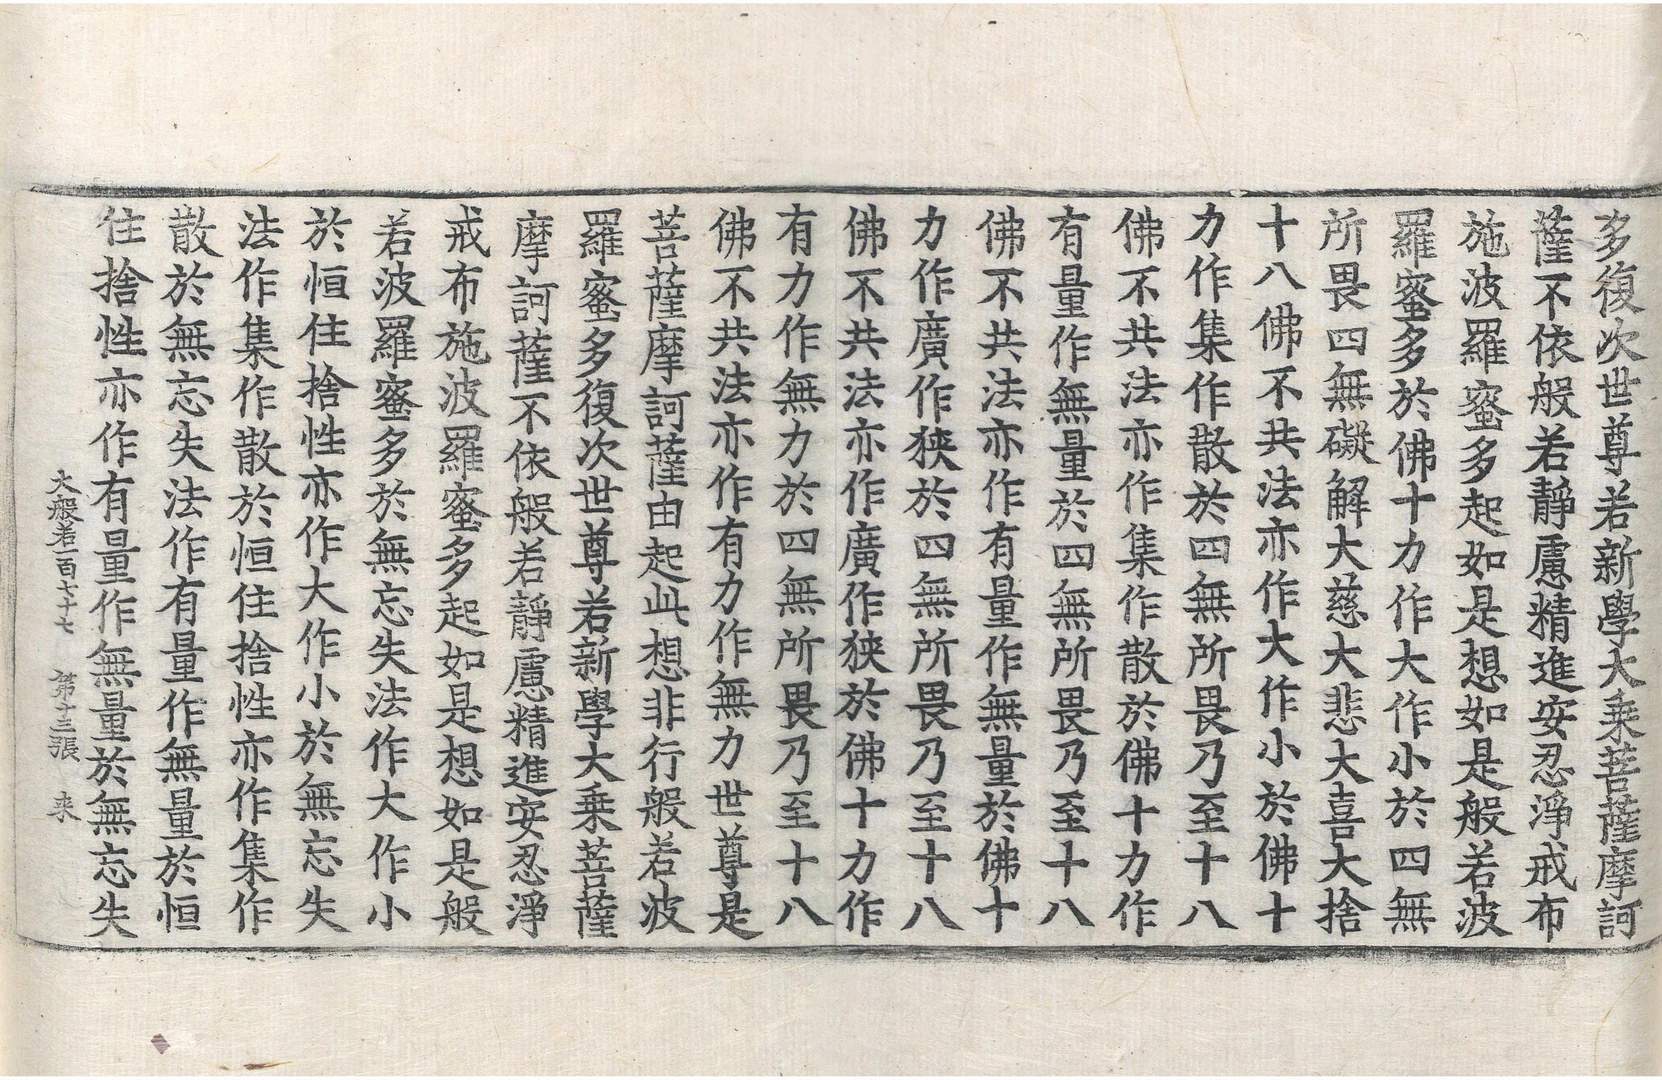 多復次世尊若新學大乘菩薩摩訶
薩不依般若靜慮精進安忍淨戒布
施波羅蜜多起如是想如是般若波
羅蜜多於佛十力作大作小於四無
所畏四無礙解大慈大悲大喜大捨
十八佛不共法亦作大作小於佛十
力作集作散於四無所畏乃至十八
佛不共法亦作集作散於佛十力作
有量作無量於四無所畏乃至十八
佛不共法亦作有量作無量於佛十
力作廣作狹於四無所畏乃至十八
佛不共法亦作廣作狹於佛十力作
有力作無力於四無所畏乃至十八
佛不共法亦作有力作無力世尊是
菩薩摩訶薩由起此想非行般若波
羅蜜多復次世尊若新學大乘菩薩
摩訶薩不依般若靜慮精進安忍淨
戒布施波羅蜜多起如是想如是般
若波羅蜜多於無忘失法作大作小
於恒住捨性亦作大作小於無忘失
法作集作散於恒住捨性亦作集作
散於無忘失法作有量作無量於恒
住捨性亦作有量作無量於無忘失
大般若一百七十七 第十三張 来